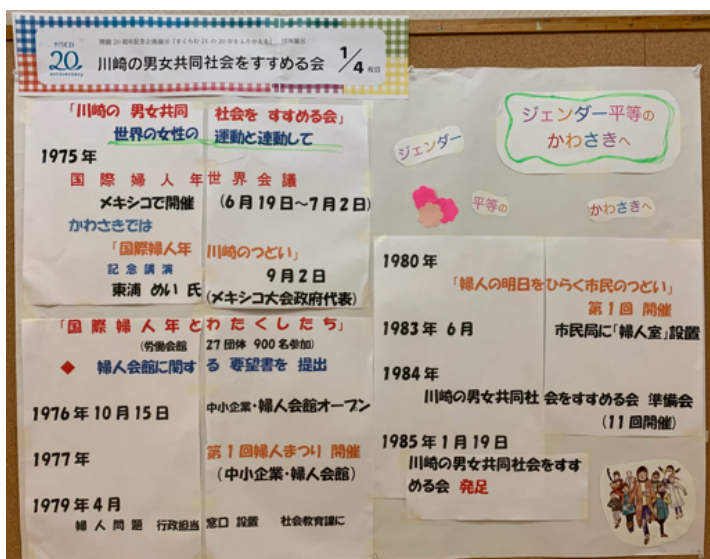 20
anniversary
開館20周年記念企画展示「すくらむ21の20年をふりかえる」
川崎の男女共同社会をすすめる会
1/4 枚目
「川崎の 男女共同 社会を すすめる会」
世界の女性の 運動と連動して
1975年
国際婦人年世界会議
メキシコで開催 (6月19日～7月2日)
かわさきでは
「国際婦人年 川崎のつどい」
記念講演 9月2日
東浦 めい 氏 (メキシコ大会政府代表)
「国際婦人年とわたくしたち」
(労働会館 27団体 900名参加)
◆ 婦人会館に関する 要望書を 提出
1976年10月15日 中小企業・婦人会館オープン
1977年 第1回婦人まつり 開催
(中小企業・婦人会館)
1979年4月
婦人問題 行政担当 窓口 設置 社会教育課に
ジェンダー平等の
かわさきへ
ジェンダー
平等の
かわさきへ
1980年
「婦人の明日をひらく市民のつどい」
第1回 開催
1983年 6月 市民局に「婦人室」設置
1984年
川崎の男女共同社会をすすめる会 準備会
(11回開催)
1985年1月19日
川崎の男女共同社会をすす
める会 発足